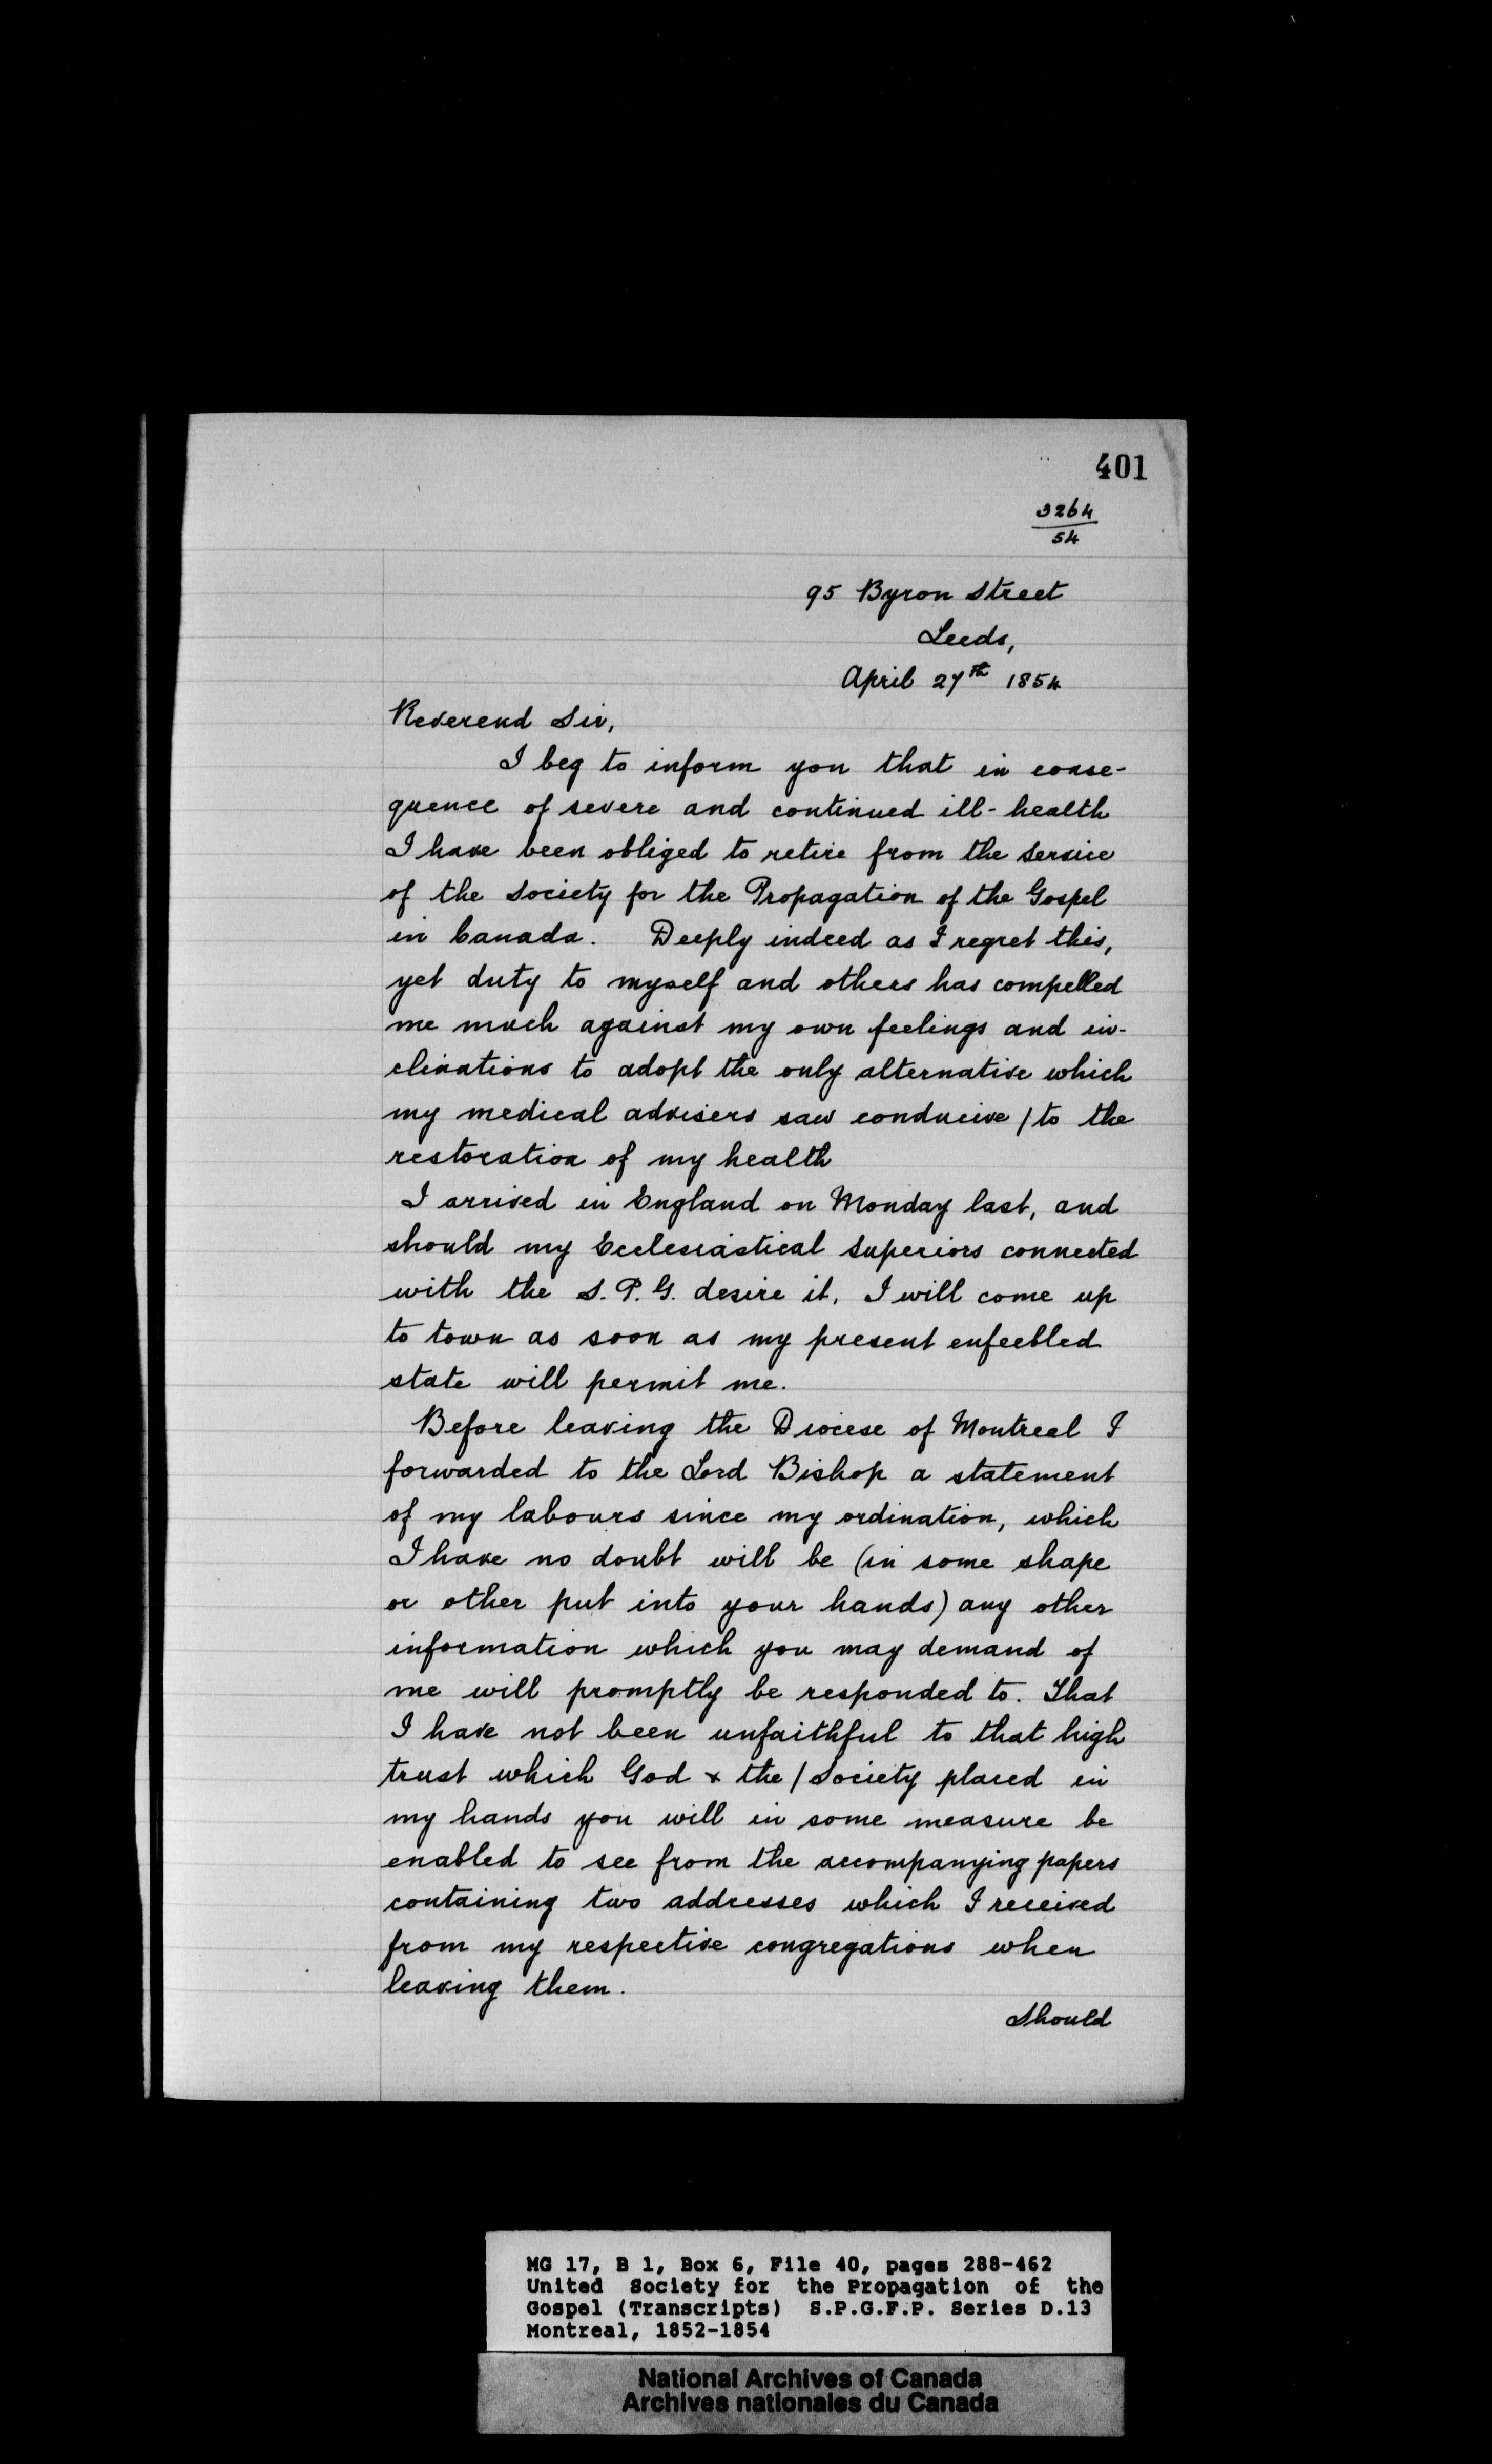 401
3264
54
95 Byron Street
Leeds,
April 27th 1854
Reverend Sir,
I beg to inform you that in conse-
quence of severe and continued ill-health
I have been obliged to retire from the service
of the Society for the Propagation of the Gospel
in Canada. Deeply indeed as I regret this,
yet duty to myself and others has compelled
me much against my own feelings and in-
clinations to adopt the only alternative which
my medical advisers saw conducive / to the
restoration of my health
I arrived in England on Monday last, and
should my Ecclesiastical Superiors connected
with the S. P. G. desire it, I will come up
to town as soon as my present enfeebled
state will permit me.
Before leaving the Diocese of Montreal I
forwarded to the Lord Bishop a statement
of my labours since my ordination, which
I have no doubt will be (in some shape
or other put into your hands) any other
information which you may demand of
me will promptly be responded to. That
I have not been unfaithful to that high
trust which God & the / Society placed in
my hands you will in some measure be
enabled to see from the accompanying papers
containing two addresses which I received
from my respective congregations when
leaving them.
Should
MG 17, B 1, Box 6, File 40, pages 288-462
United Society for the Propagation of the
Gospel (Transcripts) S.P.G.F.P. Series D.13
Montreal, 1852-1854
National Archives of Canada
Archives nationales du Canada